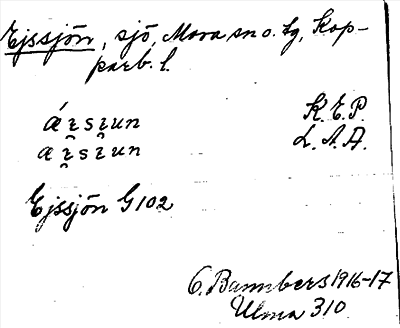 Ejssjön, sjö, Mora sn o. tg, Kop-
parb. l.
K. E. P.
L. A. A.
Ejssjön G 102
O. Bannbers 1916-17
Ulma 310